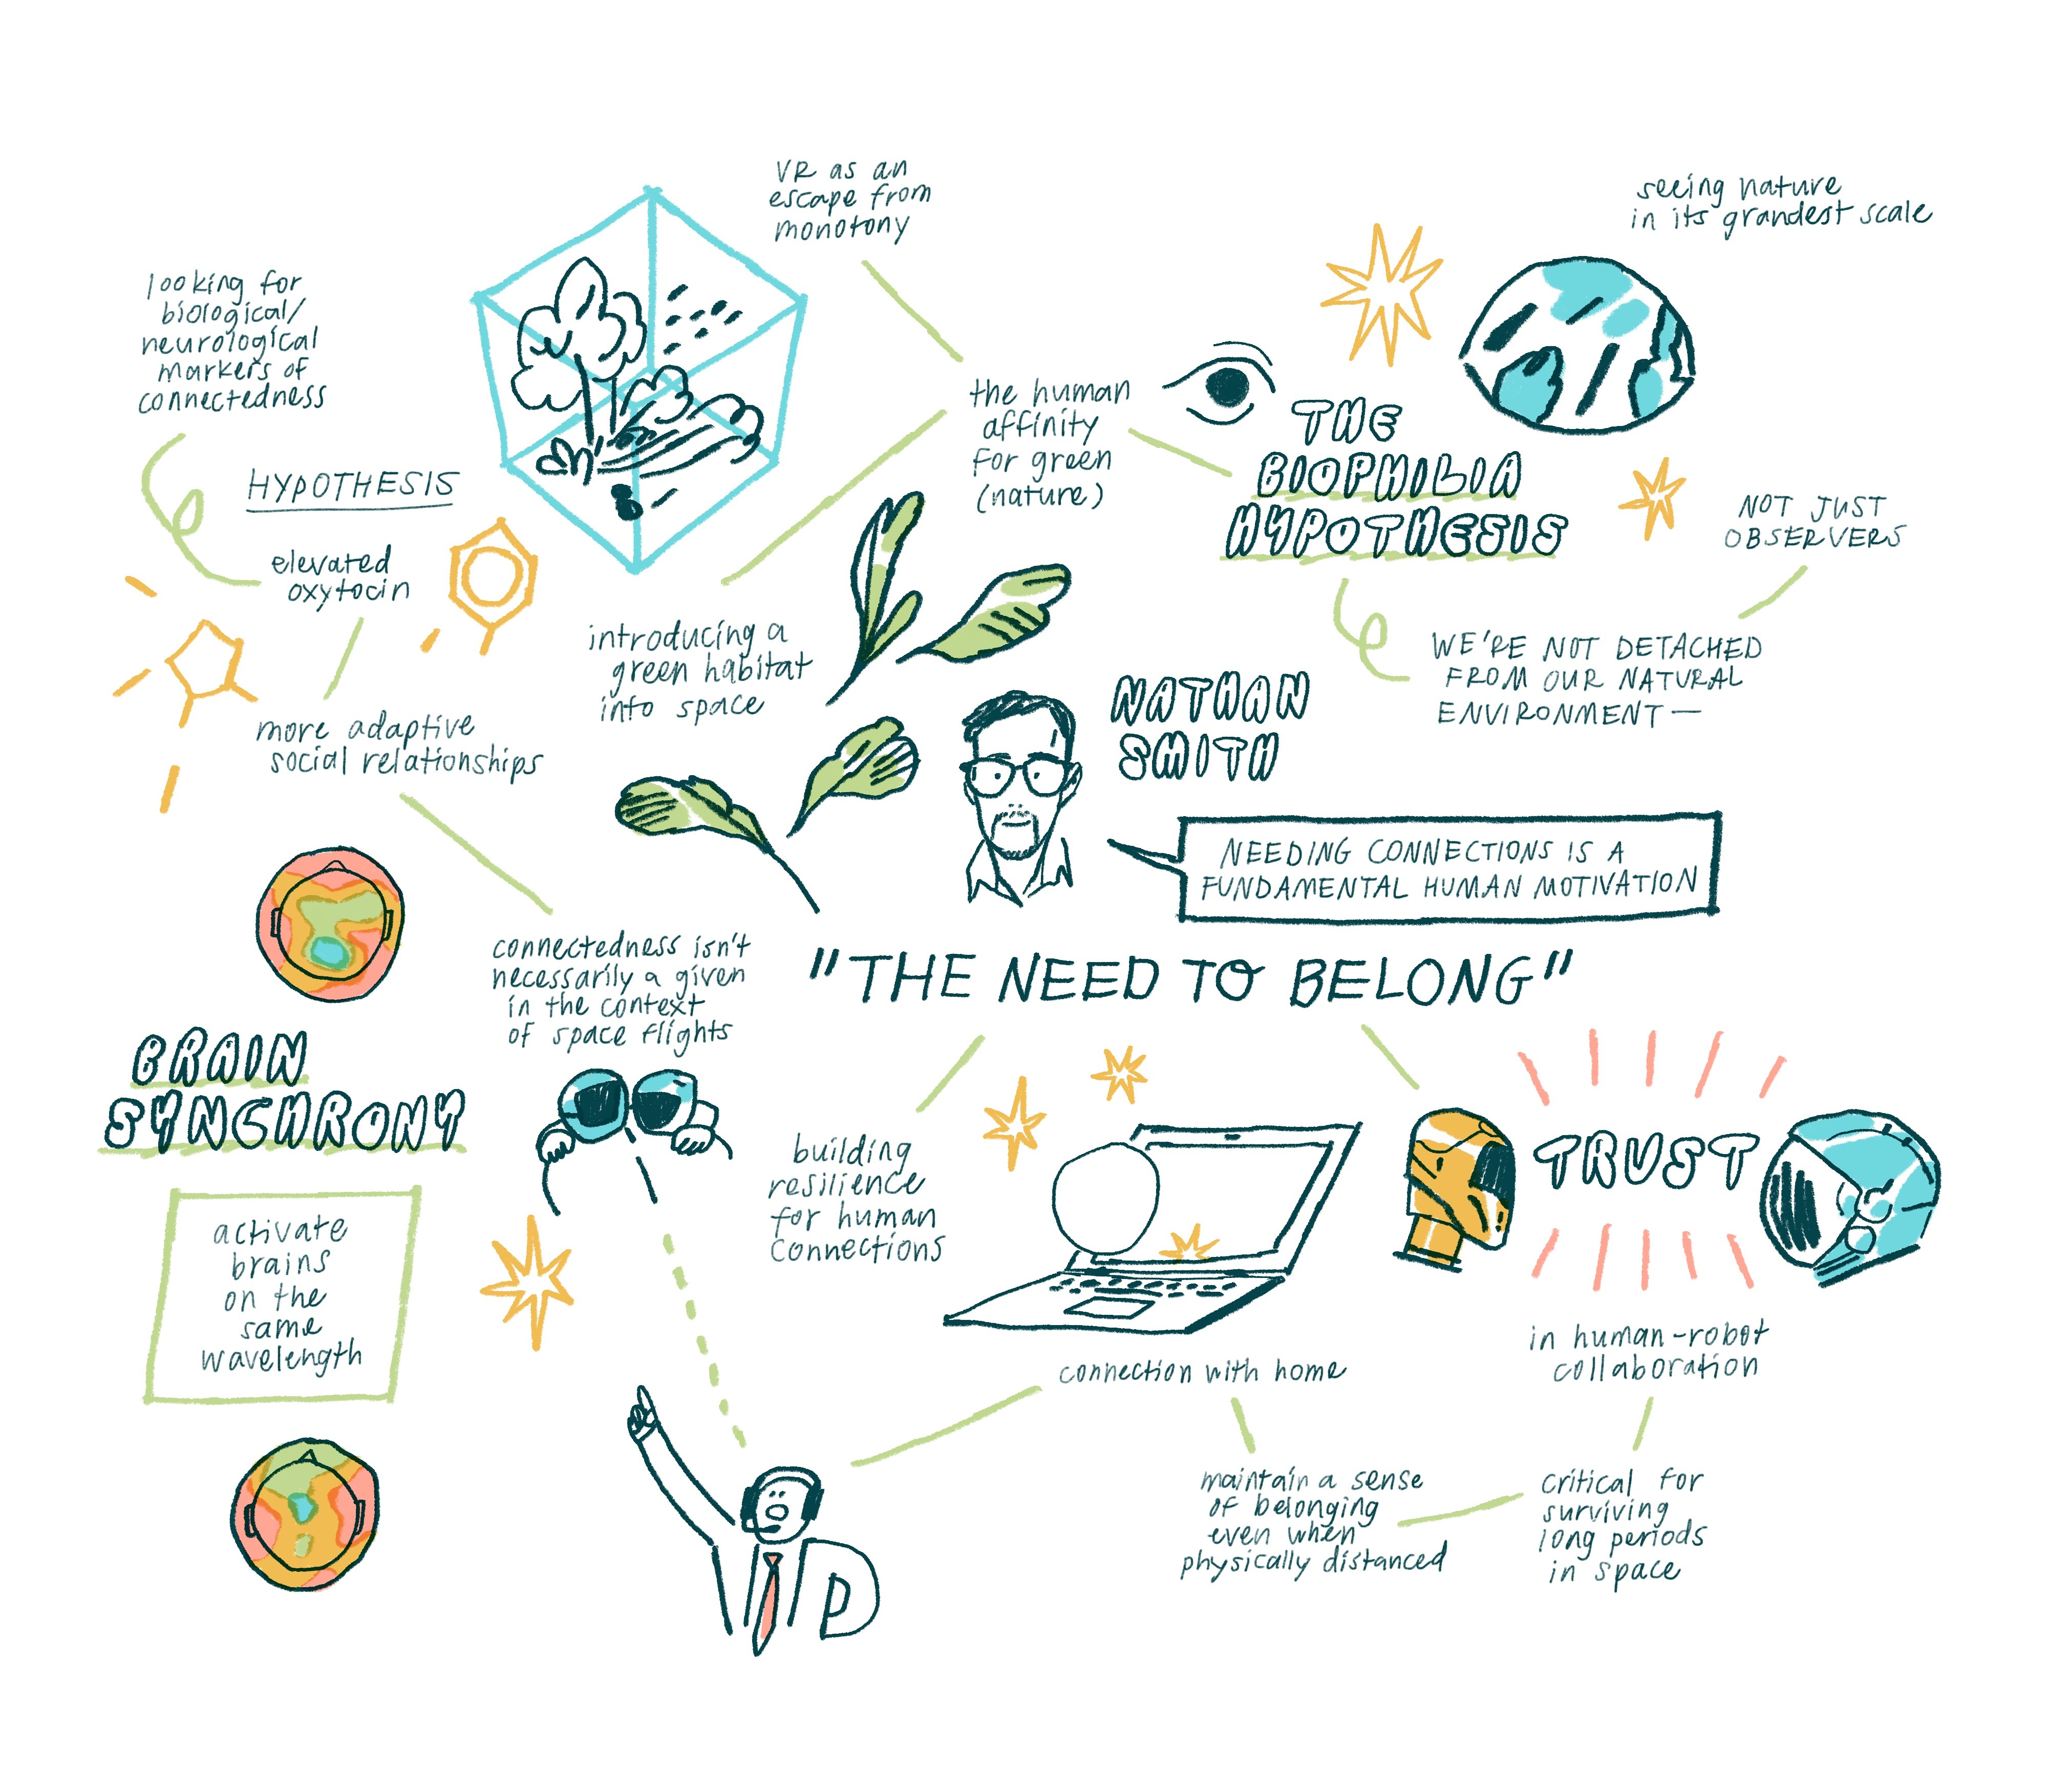 VR as an
escape from
monotony
seeing nature
in its grandest scale
looking for
biological/
neurological
markers of
connectedness
HYPOTHESIS
elevated
oxytocin
more adaptive
social relationships
the human
affinity
for green
(nature)
THE
BIOPHILIA
HYPOTHESIS
NOT JUST
OBSERVERS
WE'RE NOT DETACHED
FROM OUR NATURAL
ENVIRONMENT—
introducing a
green habitat
into space
NATHAN
SMITH
NEEDING CONNECTIONS IS A
FUNDAMENTAL HUMAN MOTIVATION
"THE NEED TO BELONG"
connectedness isn't
necessarily a given
in the context
of space flights
BRAIN
SYNCHRONY
activate
brains
on the
same
wavelength
building
resilience
for human
connections
TRUST
in human-robot
collaboration
connection with home
maintain a sense
of belonging
even when
physically distanced
critical for
surviving
long periods
in space